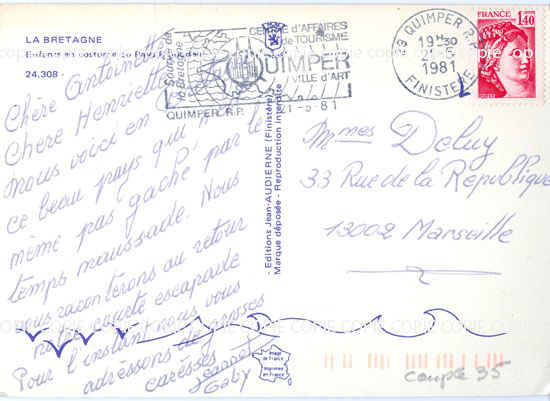 LA BRETAGNE
Enfants en costume du Pays
24.308 -
Chère Antoinette
Chère Henriette
nous voici en
ce beau pays qui
même pas gâché par le
temps maussade. Nous
vous raconterons au retour
notre courte escapade
Pour l'instant nous vous
adressons de grosses
caresses
Gaby
Souvenir de
la Bretagne
CENTRE D'AFFAIRES
et de TOURISME
QUIMPER
VILLE d'ART
QUIMPER R.P.
21-5-81
QUIMPER R.P.
19H30
21-5
1981
FINISTERE
FRANCE
1,40
POSTES
- Editions Jean AUDIERNE (Finistère) -
Marque déposée - Reproduction interdite
Mmes Deluy
33 Rue de la République
13002 Marseille
Image
de France
Imprimée
en France
couple 35
COPIE COPIE COPIE COPIE COPIE COPIE